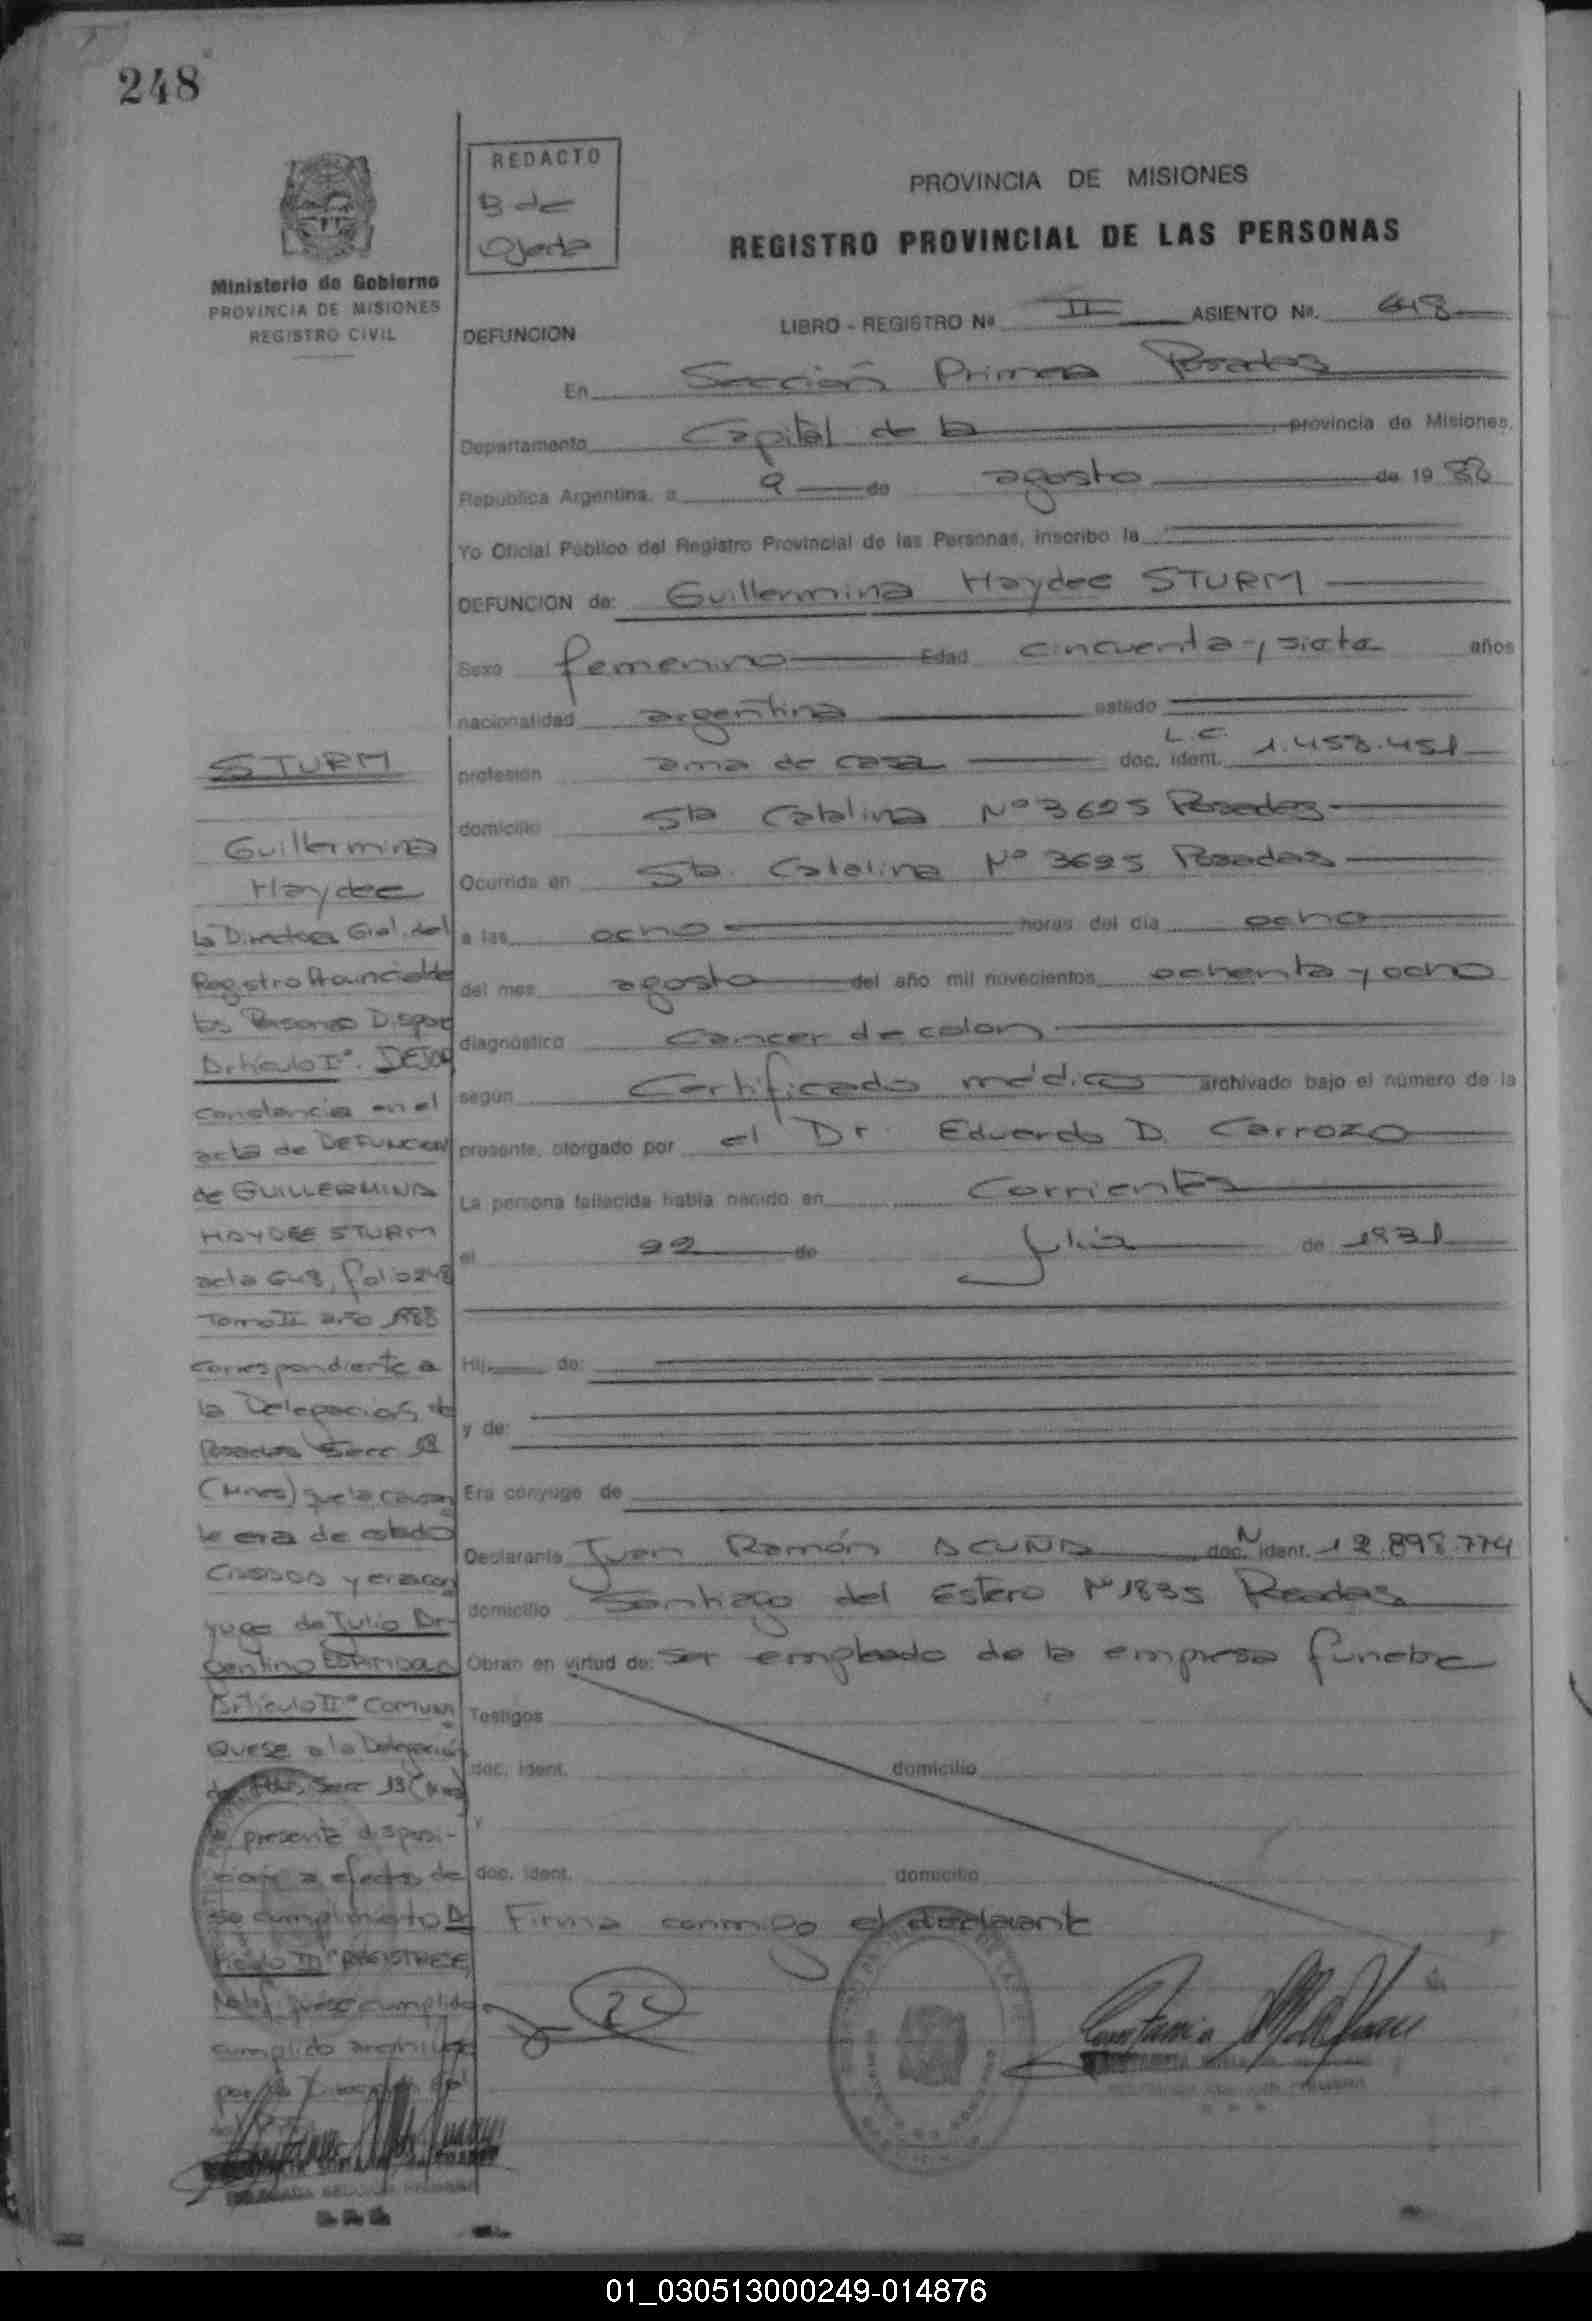 248
REDACTO
B de
Ojeda
PROVINCIA DE MISIONES
REGISTRO PROVINCIAL DE LAS PERSONAS
Ministerio de Gobierno
PROVINCIA DE MISIONES
REGISTRO CIVIL
DEFUNCION
LIBRO - REGISTRO Nº II ASIENTO Nº. 648
En Sección Primera Posadas
Departamento Capital de la provincia de Misiones,
Republica Argentina, a 9 de agosto de 1988
Yo Oficial Público del Registro Provincial de las Personas, inscribo la
DEFUNCION de: Guillermina Haydee STURM
Sexo femenino Edad cincuenta y siete años
nacionalidad argentina estado
profesión ama de casa doc. ident. L.C. 1.458.451
domicilio Sta Catalina Nº 3695 Posadas
Ocurrida en Sta. Catalina Nº 3695 Posadas
a las ocho horas del día ocho
del mes agosto del año mil novecientos ochenta y ocho
diagnóstico Cancer de colon
según Certificado médico archivado bajo el número de la
presente, otorgado por el Dr. Eduardo D. Carrozo
La persona fallecida había nacido en Corrientes
el 22 de julio de 1931
Hij de:
y de:
Era cónyuge de
Declarante Juan Ramón ACUÑA doc. N ident. 12.898.774
domicilio Santiago del Estero Nº 1835 Posadas
Obran en virtud de: ser empleado de la empresa funebre
Testigos
doc. ident. domicilio
y
doc. ident. domicilio
Firma conmigo el declarante
STURM
Guillermina
Haydee
La Directora Gral. del
Registro Provincial de
las Personas Dispone
Artículo Iº. DEJAR
constancia en el
acta de DEFUNCION
de GUILLERMINA
HAYDEE STURM
acta 648, folio 248
Tomo II año 1988
correspondiente a
la Delegación de
Posadas Secc 1ª
(Mnes) que la causan
te era de estado
CASADA y era cón
yuge de Julio Ar-
gentino
Artículo IIº Comuni
quese a la Delegación
Secc 1ª (Mnes)
la presente disposi-
ción a efecto de
su cumplimiento Ar
tículo IIIº REGISTRESE,
Notifíquese cumplido
cumplido archívese
por la
01_030513000249-014876